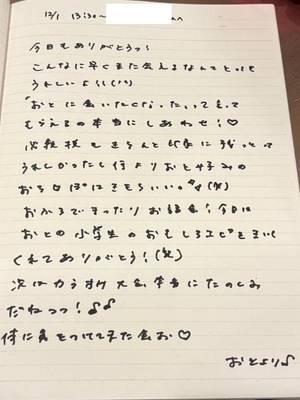 12/1 13:30〜
今日もありがとうっ!
こんなに早くまた会えるなんてとっても
うれしいよ!!(^^)
「おとに会いたくなったって思って
もらえるの本当にしあわせ!♡
必殺技もきちんと印象に残ってて
うれしかったし何よりおと好みの
おち
おふろでまったりお話会!今日は
おとの小学生のおもしろエピを聞いて
くれてありがとう!(笑)
次はカラオケ大会本当にたのしみ
だねっっ!♪♪
体に気をつけてまた会お♡
おとより♪